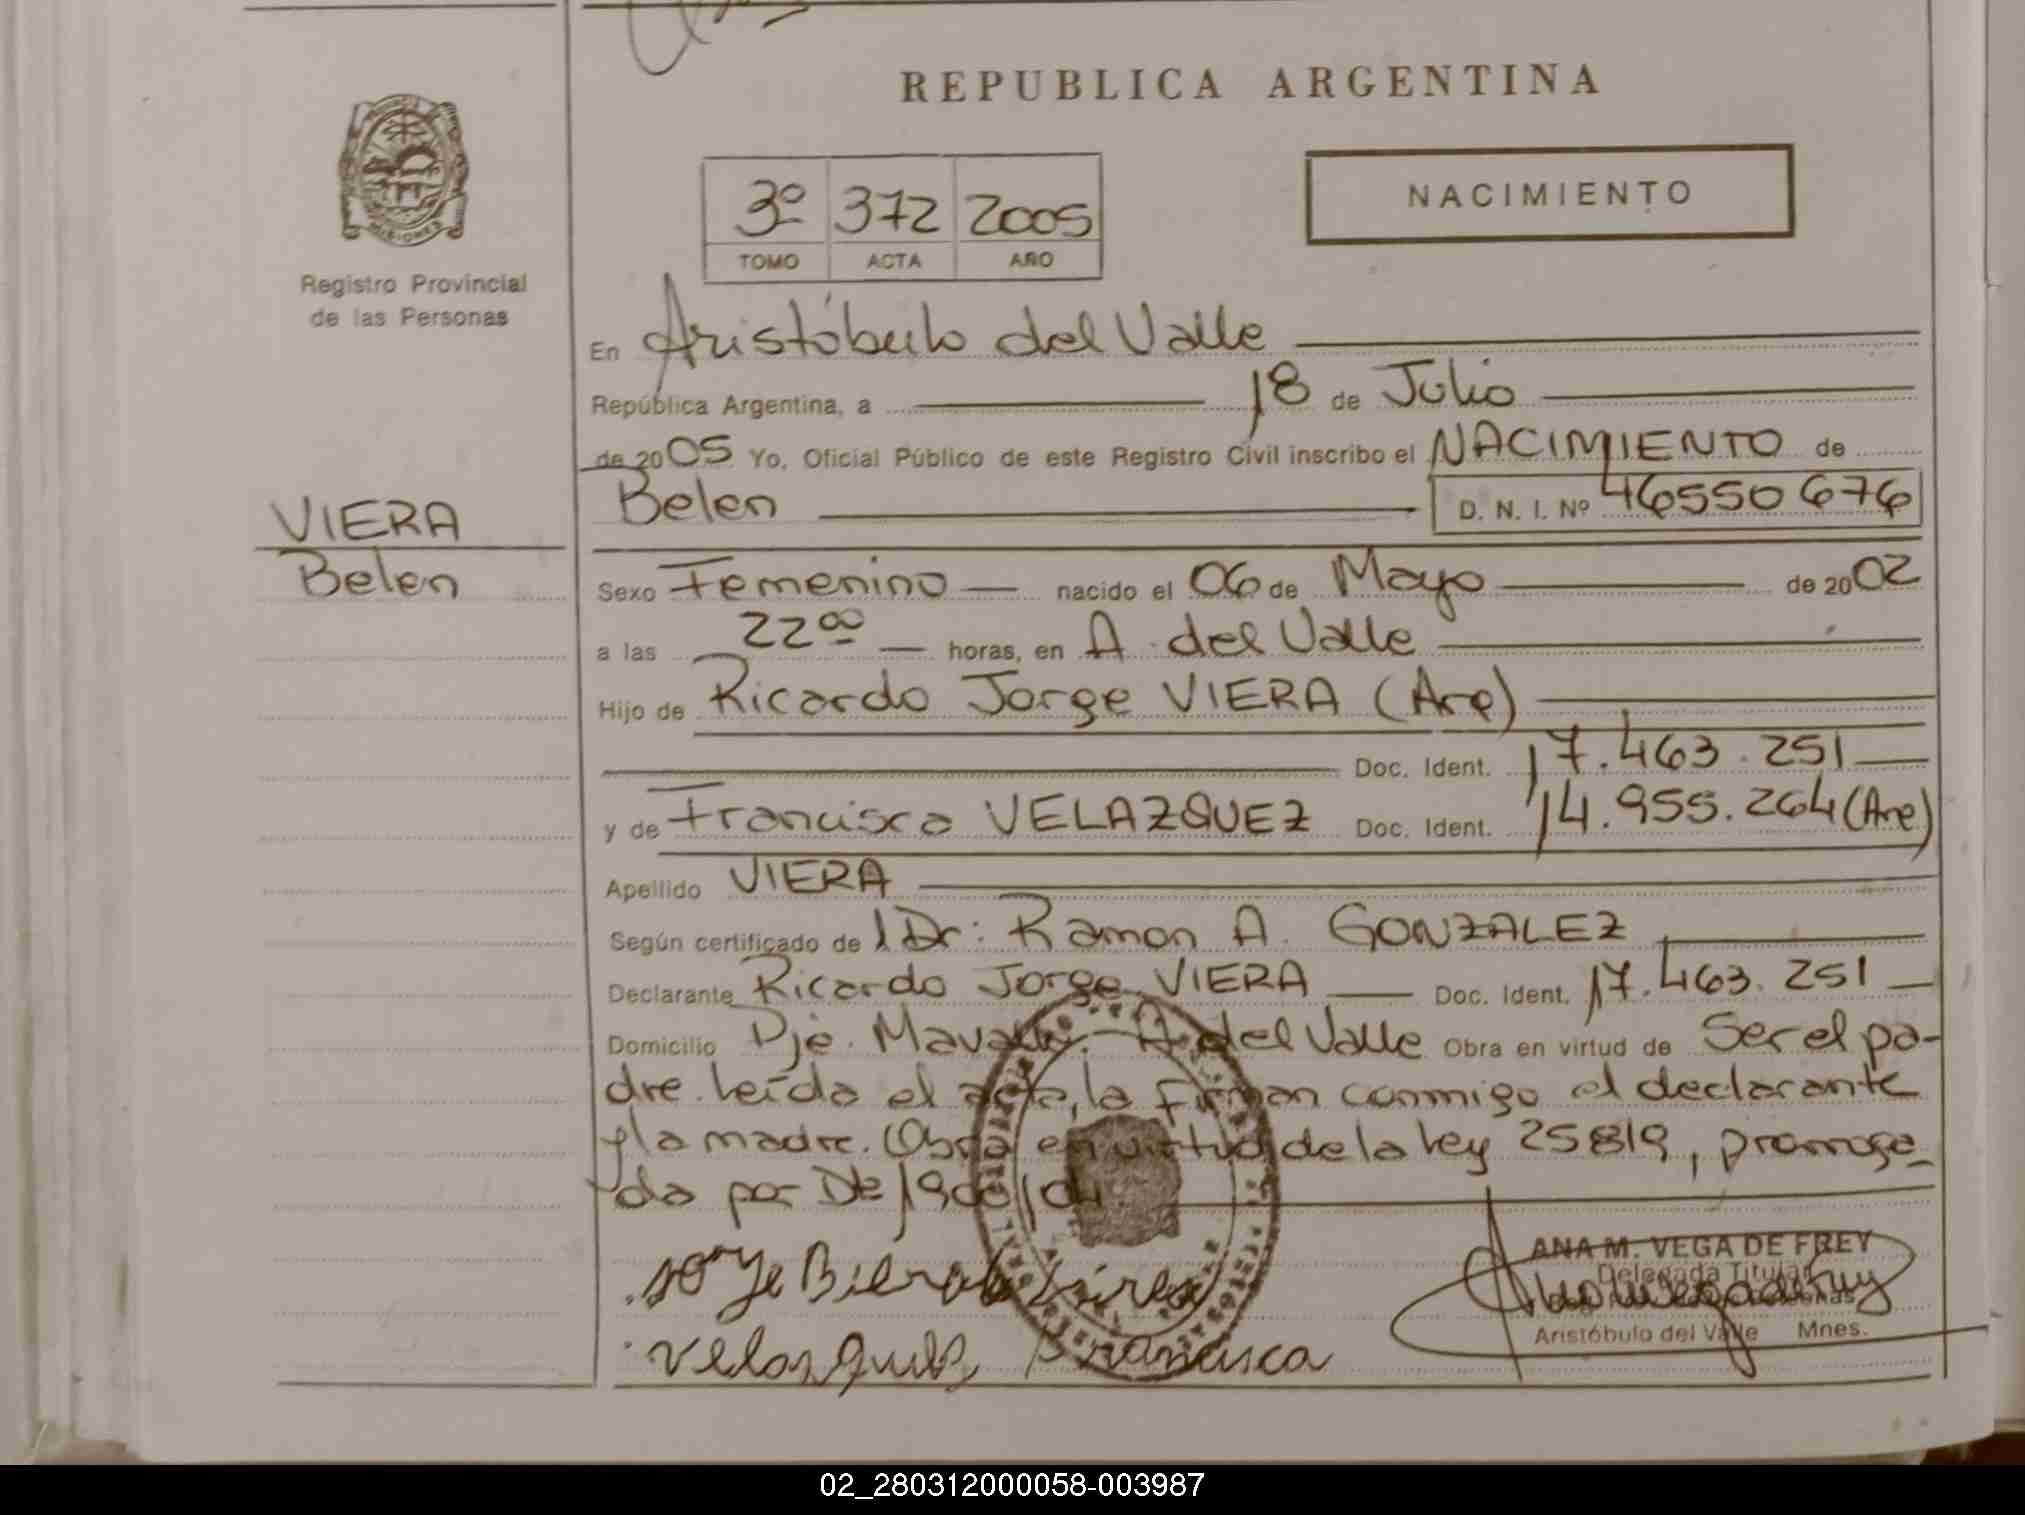 REPUBLICA ARGENTINA
MISIONES
Registro Provincial
de las Personas
3º 372 2005
TOMO ACTA AÑO
NACIMIENTO
En Aristóbulo del Valle
República Argentina, a 18 de Julio
de 2005 Yo, Oficial Público de este Registro Civil inscribo el NACIMIENTO de
Belen D. N. I. Nº 46550676
VIERA
Belen
Sexo Femenino nacido el 06 de Mayo de 2002
a las 22 00 horas, en A. del Valle
Hijo de Ricardo Jorge VIERA (Arg)
Doc. Ident. 17.463.251
y de Francisca VELAZQUEZ Doc. Ident. 14.955.264 (Arg)
Apellido VIERA
Según certificado de Dr: Ramon A. GONZALEZ
Declarante Ricardo Jorge VIERA Doc. Ident. 17.463.251
Domicilio Pje. A. del Valle Obra en virtud de Ser el pa-
dre. Leída el acta, la firman conmigo el declarante
y la madre. Obra en virtud de la ley 25819, prorroga-
da por
Jorge
Velasquez Francisca
ANA M. VEGA DE FREY
Delegada Titular
Aristóbulo del Valle Mnes.
02_280312000058-003987